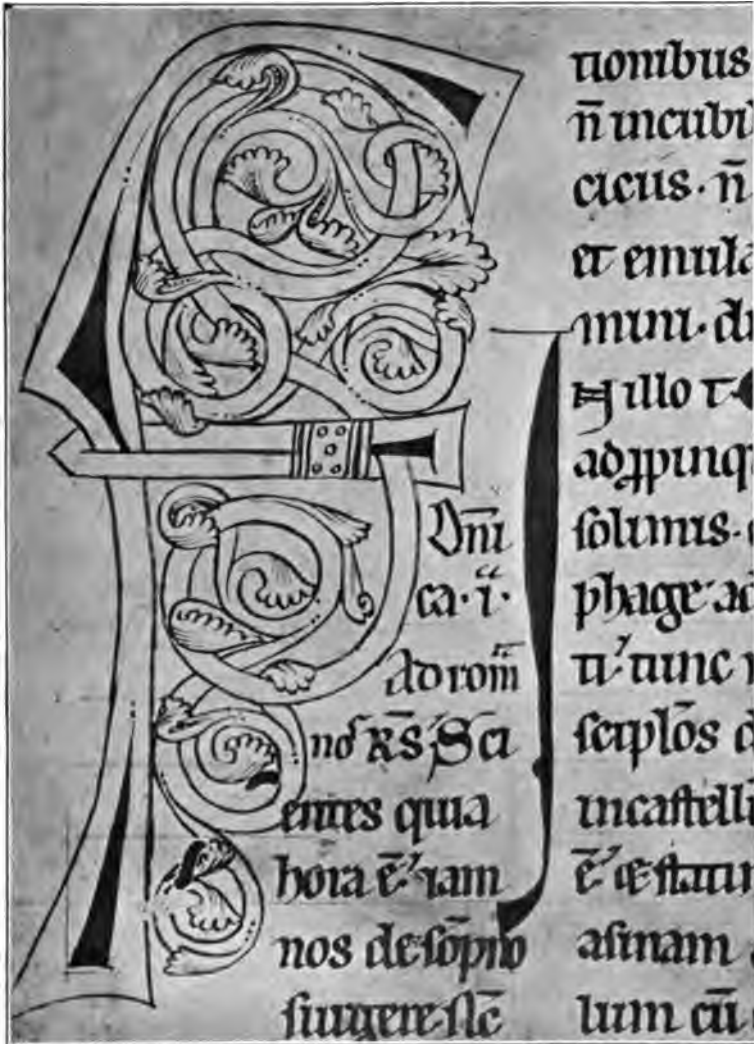 F
Dn̄i
ca·i·
Ad rom̄
entes quia
hora ē iam
nos de sōpno
surgere
tionibus
n̄ incubi
ciciis· n̄
et emula
mini· di
IN illo t
adꝓpinq
solimis·
phage ad
ti' tunc
in castellu
ē' & statim
asinam
lum cū